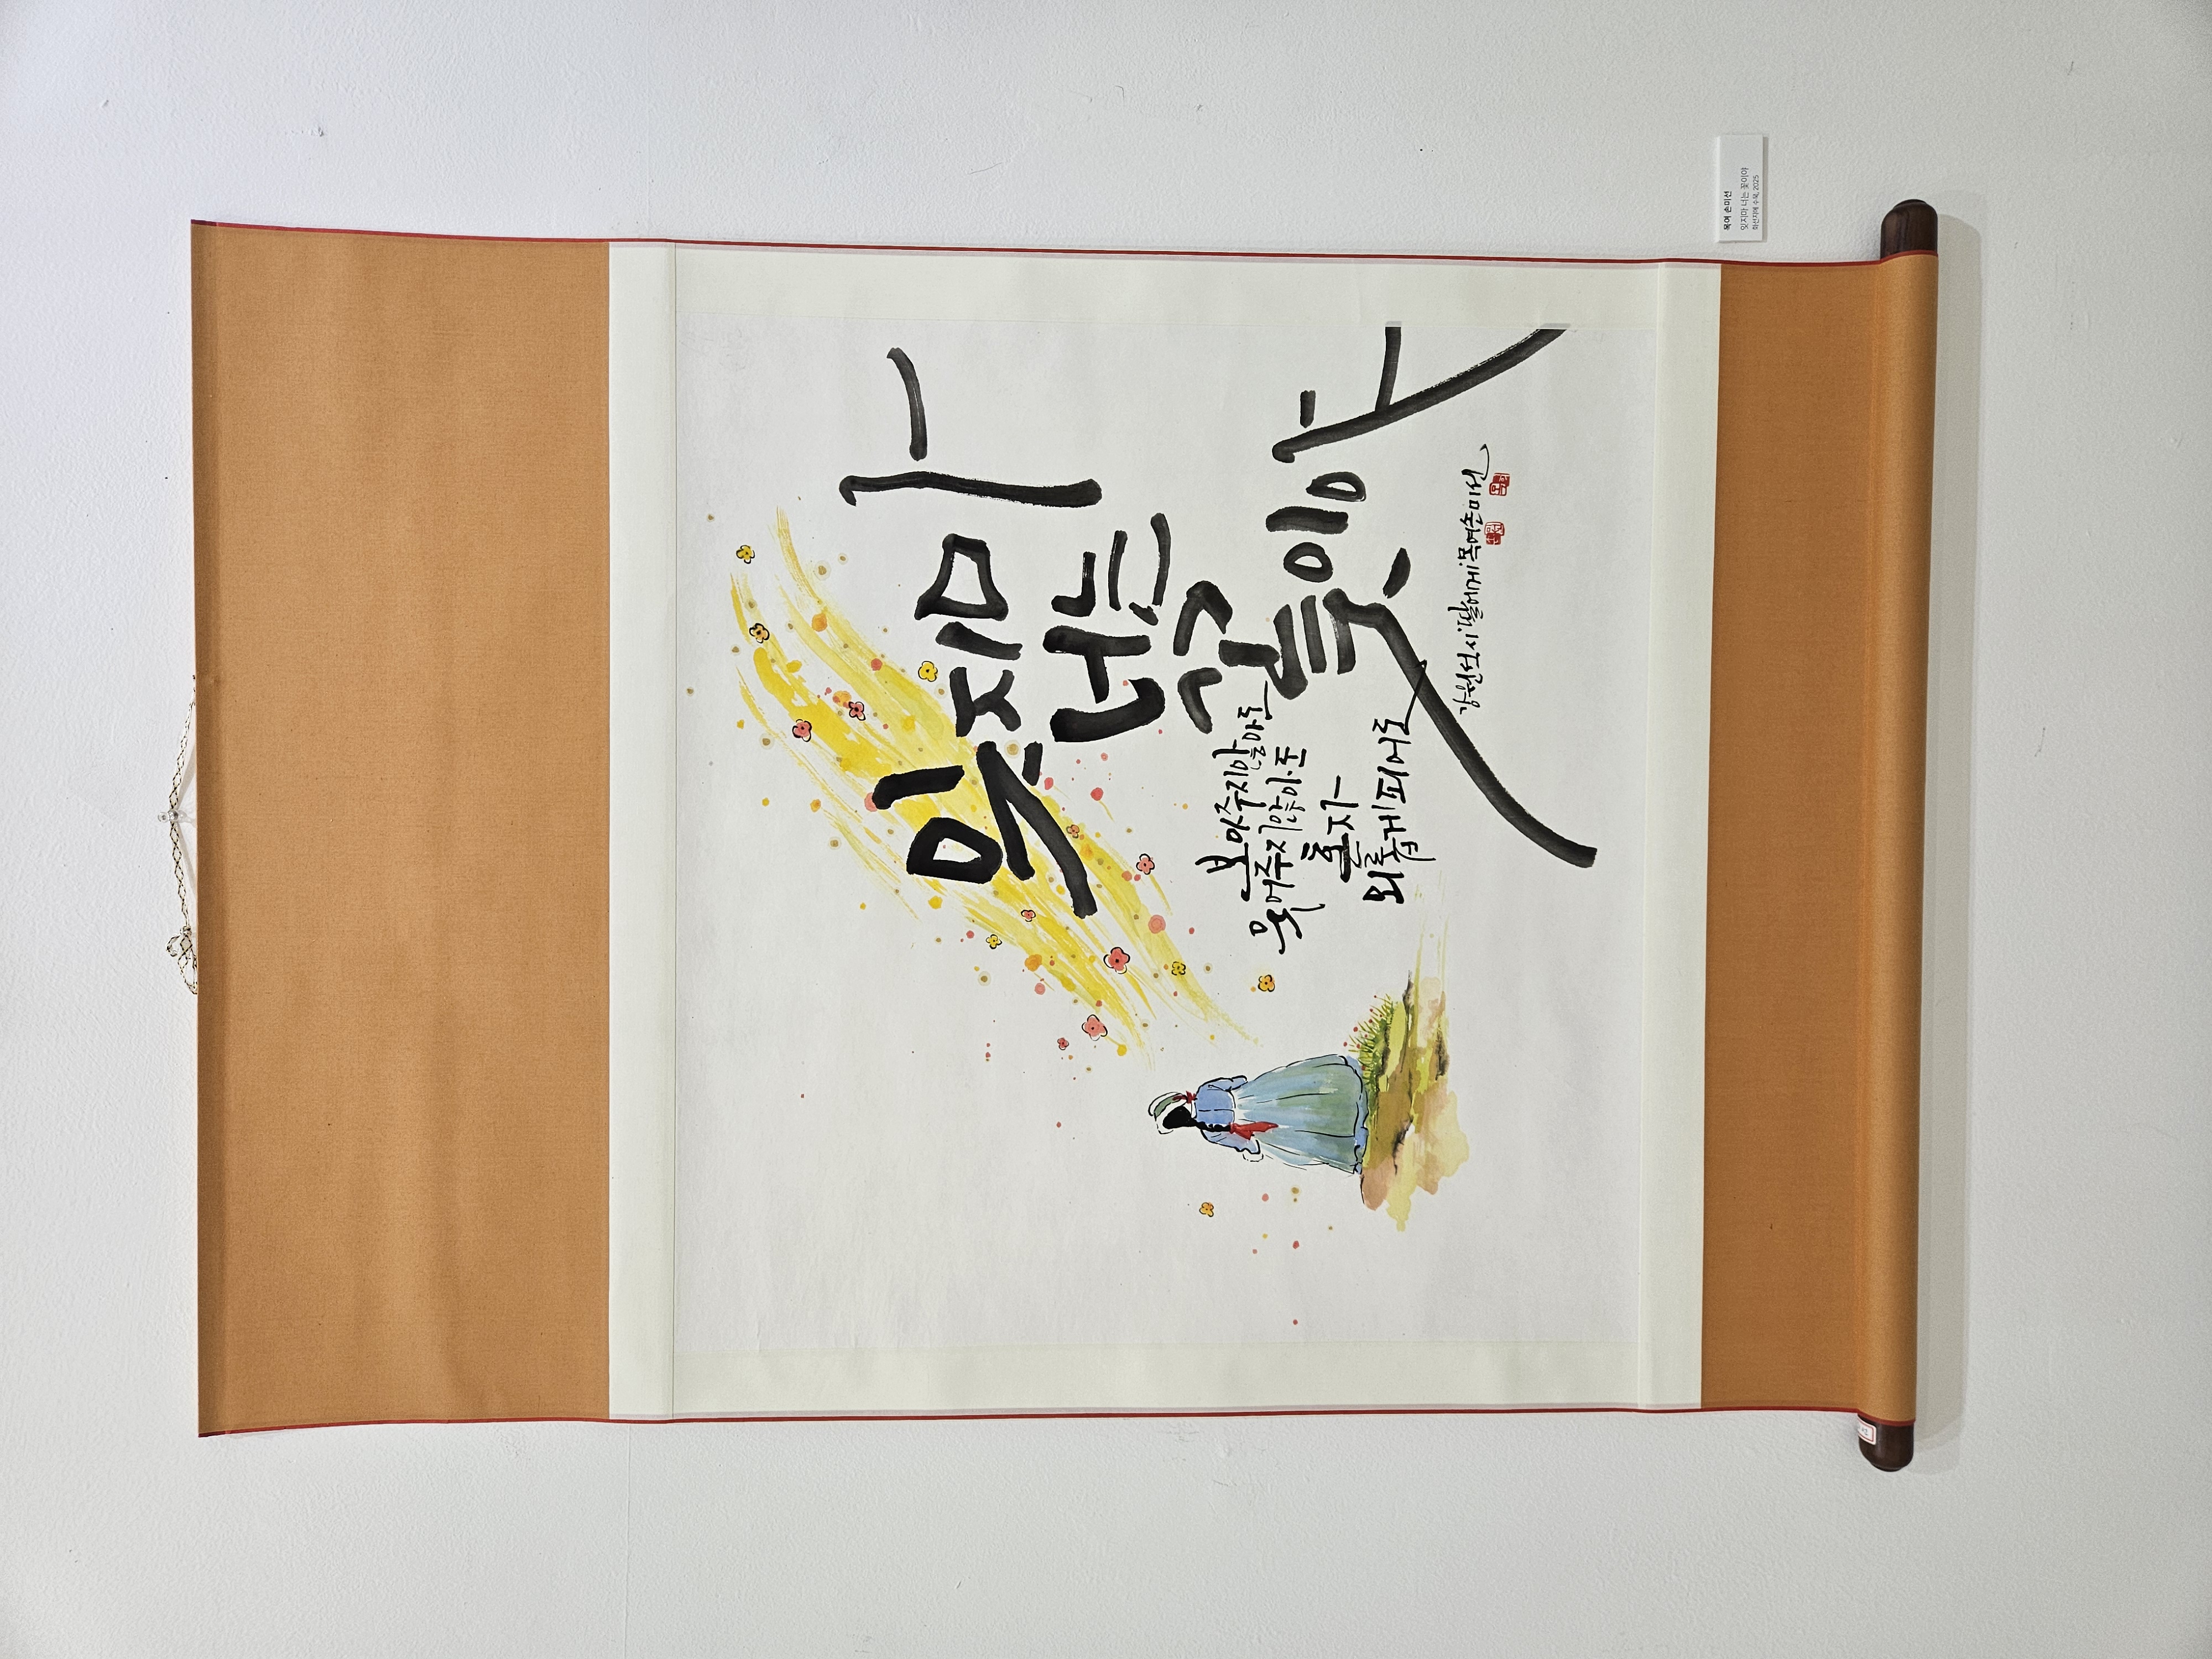 잊지마
너는
꽃이야
보아주지 않아도
않아도
혼자
외롭게 피어도
강원석 시 '딸에게' 목여 손미선
목여 손미선
잊지마 너는 꽃이야
화선지에 수묵, 2025